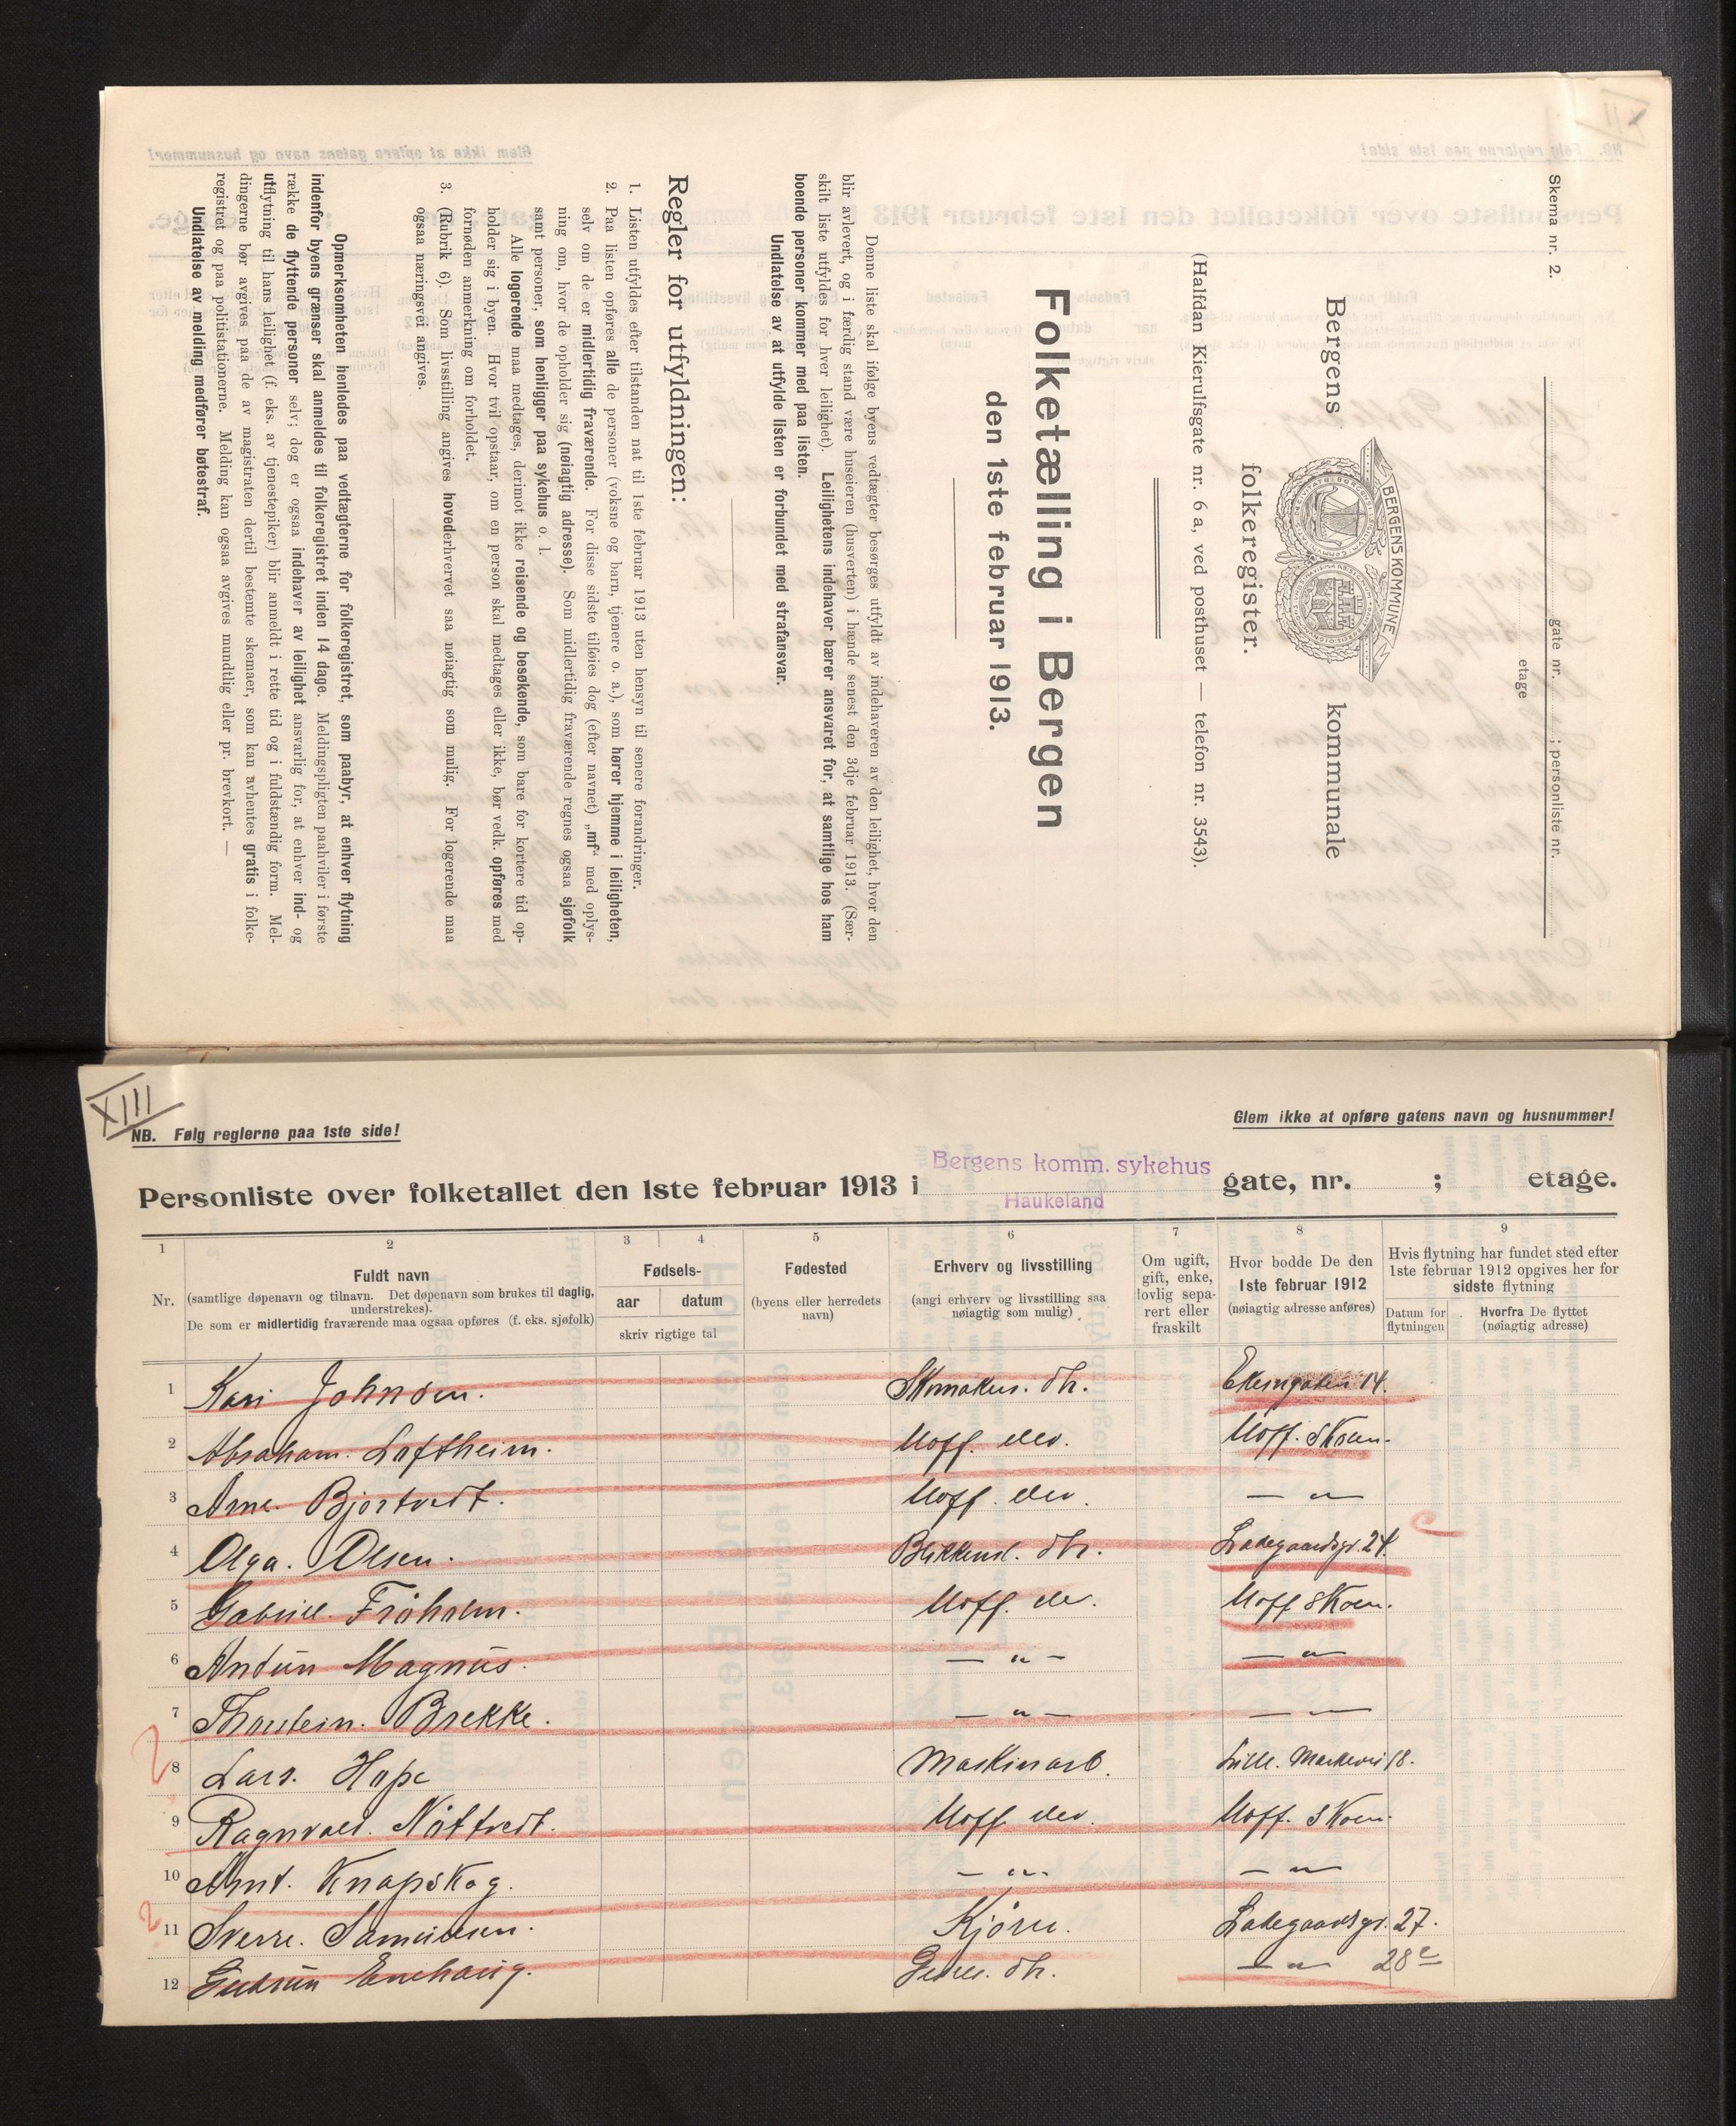 Skema nr. 2.
gate nr. i personliste nr.
etage
Bergens kommunale
folkeregister.
BERGENS KOMMUNE
(Halfdan Kierulfsgate nr. 6 a, ved posthuset — telefon nr. 3543).
Folketælling i Bergen
den 1ste februar 1913.
Denne liste skal ifølge byens vedtægter besørges utfyldt av indehaveren av den leilighet, hvor den
blir avlevert, og i færdig stand være huseieren (husverten) i hænde senest den 3dje februar 1913. (Sær-
skilt liste utfyldes for hver leilighet). Leilighetens indehaver bærer ansvaret for, at samtlige hos ham
boende personer kommer med paa listen.
Undlatelse av at utfylde listen er forbundet med strafansvar.
Regler for utfyldningen:
1. Listen utfyldes efter tilstanden nat til 1ste februar 1913 uten hensyn til senere forandringer.
2. Paa listen opføres alle de personer (voksne og barn, tjenere o. a.), som hører hjemme i leiligheten,
selv om de er midlertidig fraværende. For disse sidste tilføies dog (efter navnet) „mf“ med oplys-
ning om, hvor de opholder sig (nøiagtig adresse). Som midlertidig fraværende regnes ogsaa sjøfolk
samt personer, som henligger paa sykehus o. l.
Alle logerende maa medtages, derimot ikke reisende og besøkende, som bare for kortere tid op-
holder sig i byen. Hvor tvil opstaar, om en person skal medtages eller ikke, bør vedk. opføres med
fornøden anmerkning om forholdet.
3. (Rubrik 6). Som livsstilling angives hovederhvervet saa nøiagtig som mulig. For logerende maa
ogsaa næringsvei angives.
Opmerksomheten henledes paa vedtægterne for folkeregistret, som paabyr, at enhver flytning
indenfor byens grænser skal anmeldes til folkeregistret inden 14 dage. Meldingspligten paahviler i første
række de flyttende personer selv; dog er ogsaa indehaver av leilighet ansvarlig for, at enhver ind- og
utflytning til hans leilighet (f. eks. av tjenestepiker) blir anmeldt i rette tid og i fuldstændig form. Mel-
dingerne bør avgives paa de av magistraten dertil bestemte skemaer, som kan avhentes gratis i folke-
registret og paa politistationerne. Melding kan ogsaa avgives mundtlig eller pr. brevkort. —
Undlatelse av melding medfører bøtestraf.
XIII
NB. Følg reglerne paa 1ste side!
Glem ikke at opføre gatens navn og husnummer!
Personliste over folketallet den 1ste februar 1913 i Bergens komm. sykehus gate, nr. ; etage.
Haukeland
1 2 3 4 5 6 7 8 9
Nr.
Fuldt navn
(samtlige døpenavn og tilnavn. Det døpenavn som brukes til daglig,
understrekes).
De som er midlertidig fraværende maa ogsaa opføres (f. eks. sjøfolk)
Fødsels-
aar datum
skriv rigtige tal
Fødested
(byens eller herredets
navn)
Erhverv og livsstilling
(angi erhverv og livsstilling saa
nøiagtig som mulig)
Om ugift,
gift, enke,
lovlig sepa-
rert eller
fraskilt
Hvor bodde De den
1ste februar 1912
(nøiagtig adresse anføres)
Hvis flytning har fundet sted efter
1ste februar 1912 opgives her for
sidste flytning
Datum for
flytningen
Hvorfra De flyttet
(nøiagtig adresse)
1 Kari Johnsen. Skomakers. dtr. 14.
2 Abraham. Loftheim. Uoff. elev. Uoff. Skolen.
3 Arne. Bjortvedt. Uoff. elev. — " —
4 Olga. Olsen. Blikkensl. dtr. Ladegaardsgt. 24.
5 Gabriel. Froholm. Uoff. elev. Uoff Skolen.
6 Magnus. — " — — " —
7 Thorstein. Brekke. — " — — " —
8 Lars. Hope Maskinarb. Lille. Markevei 18.
9 Ragnvald. Nöttvedt. Uoff. elev. Uoff. Skolen.
10 Arnt. Knapskog. — " — — " —
11 Sverre. Samuelsen. Kjöre. Ladegaardsgt. 27.
12 Gudrun dtr. — " — 28c
2
2